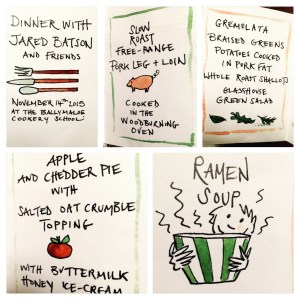 DINNER WITH
JARED BATSON
AND FRIENDS
NOVEMBER 14TH 2015
AT THE BALLYMALOE
COOKERY SCHOOL
SLOW
ROAST
FREE-RANGE
PORK LEG + LOIN
COOKED
IN THE
WOODBURNING
OVEN
GREMOLATA
BRAISED GREENS
POTATOES COOKED
IN PORK FAT
WHOLE ROAST SHALLOTS
GLASSHOUSE
GREEN SALAD
APPLE
AND CHEDDER PIE
WITH
SALTED OAT CRUMBLE
TOPPING
WITH BUTTERMILK
HONEY ICE-CREAM
RAMEN
SOUP